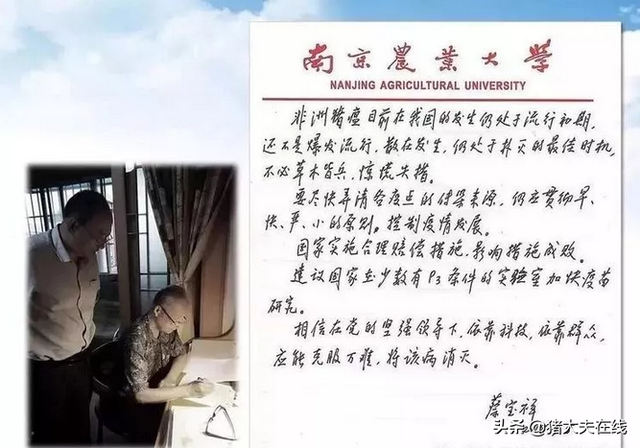 南京農業大學
NANJING AGRICULTURAL UNIVERSITY
非洲猪瘟目前在我国的发生仍处于流行初期，
还不是爆发流行，散在发生，仍处于扑灭的最佳时机，
不必草木皆兵，惊慌失措。
要尽快弄清各疫点的传染来源，仍应贯彻早、
快、严、小的原则。控制疫情发展。
国家实施合理赔偿措施，影响措施成败。
建议国家在少数有P3条件的实验室加快疫苗
研究。
相信在党的坚强领导下，依靠科技，依靠群众，
应能克服万难，将该病消灭。
蔡宝祥
头条@猪大夫在线